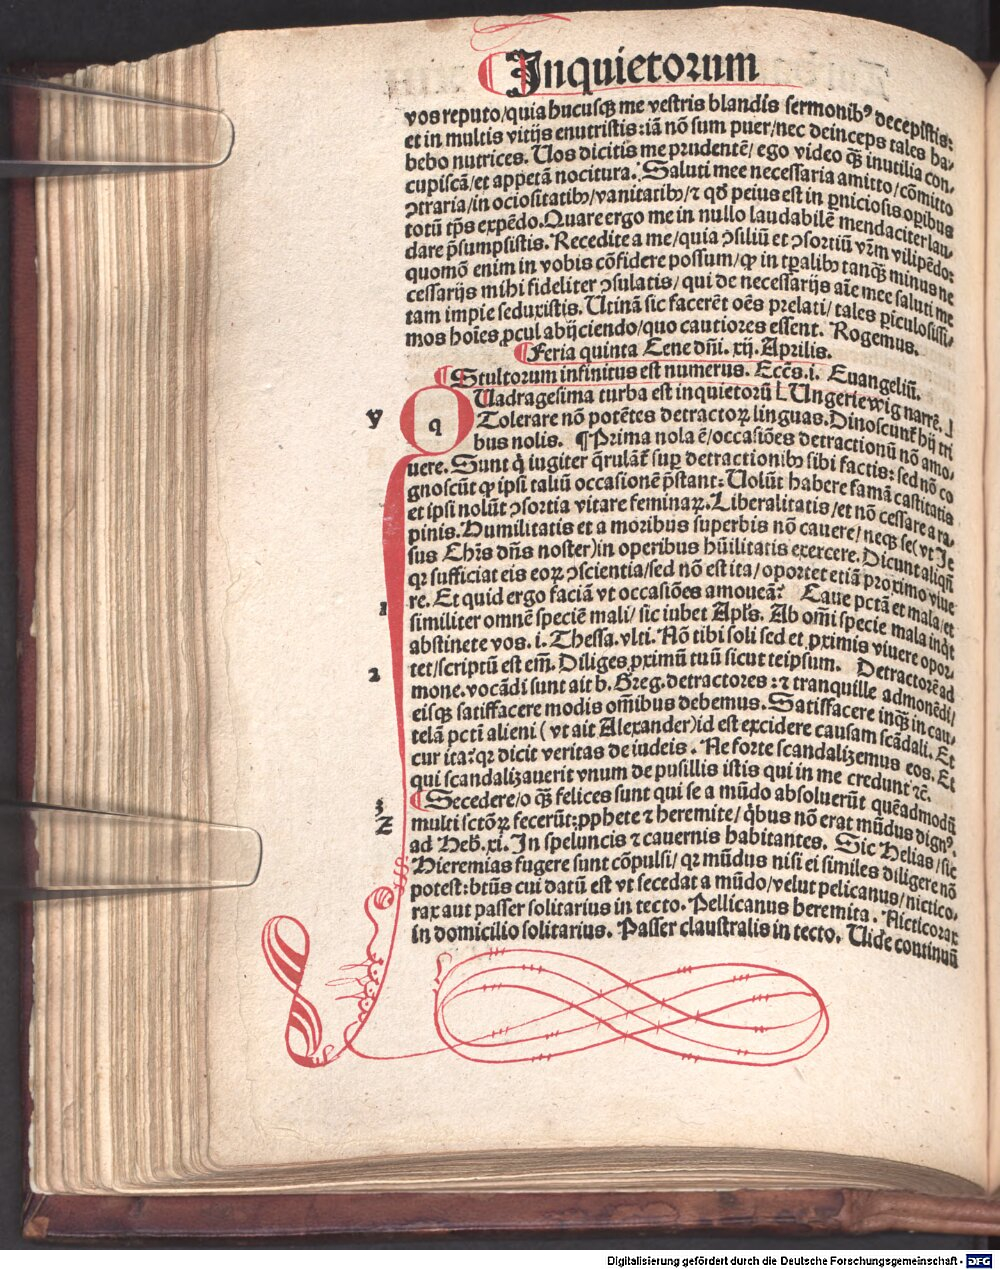 Inquietorum
vos reputo/quia hucusqꝫ me vestris blandis sermonibꝰ decepistis:
et in multis vitijs enutristis:iā nō sum puer/nec deinceps tales ha-
bebo nutrices. Uos dicitis me prudentē/ ego video qꝫ inutilia con-
cupiscā/et appetā nocitura. Saluti mee necessaria amitto/cōmitto
ꝯtraria/in ociositatibꝫ/vanitatibꝫ/⁊ qď peius est in ꝑniciosis oꝑibus
totū tp̄s expēdo. Quare ergo me in nullo laudabilē mendaciter lau-
dare p̄sumpsistis. Recedite a me/quia ꝯsiliū et ꝯsortiū vr̄m vilipēdo:
quomō enim in vobis cōfidere possum/ꝙ in tꝑalibꝫ tanqꝫ minus ne
cessarijs mihi fideliter ꝯsulatis/ qui de necessarijs aīe mee saluti me
tam impie seduxistis. Utinā sic facerēt oēs prelati/ tales ꝑiculosissi-
mos hoīes ꝓcul abijciendo/quo cautiores essent. Rogemus.
¶ Feria quinta Cene dn̄i. xij. Aprilis.
¶ Stultorum infinitus est numerus. Ecc̄s.i. Euangeliū.
y
q
Uadragesima turba est inquietorū [Ungeriewig narrē.]
Tolerare nō potētes detractoꝝ linguas. Dinoscunt̄ hij tri
bus nolis. ¶ Prima nola ē/occasiōes detractionū nō amo-
uere. Sunt q̇ iugiter q̄rulāt̄ suꝑ detractionibꝫ sibi factis: sed nō co
gnoscūt ꝙ ipsi taliū occasionē p̄stant: Uolūt habere famā castitatis
et ipsi nolūt ꝯsortia vitare feminaꝝ. Liberalitatis/et nō cessare a ra-
pinis. Humilitatis et a moribus superbis nō cauere/ neqꝫ se(vt Je
sus Chr̄s dn̄s noster)in operibus hūilitatis exercere. Dicunt aliqñ
qꝛ sufficiat eis eoꝝ ꝯscientia/sed nō est ita/ oportet etiā proximo viue
re. Et quid ergo faciā vt occasiōes amoueā? Caue pctā et mala/et
1
similiter omnē speciē mali/ sic iubet Apl's. Ab om̄i specie mala inq̇t
abstinete vos. i. Thessa. vlti. Nō tibi soli sed et ꝓximis viuere opor-
tet/scriptū est em̄. Diliges ꝓximū tuū sicut teipsum. Detractorē ad
2
mone. vocādi sunt ait b. Greg. detractores: ⁊ tranquille admonēdi/
eisqꝫ satisfacere modis om̄ibus debemus. Satisfacere inqꝫ in cau-
telā pcti alieni ( vt ait Alexander)id est excidere causam scādali. Et
cur ita?qꝛ dicit veritas de iudeis. Ne forte scandalizemus eos. Et
qui scandalizauerit vnum de pusillis istis qui in me credunt ⁊c̄.
3
¶ Secedere/o qꝫ felices sunt qui se a mūdo absoluerūt quēadmodū
Z
multi sctōꝝ fecerūt:ꝓphete ⁊ heremite/ q̇bus nō erat mūdus dignꝰ.
ad Heb̄. xi. In speluncis ⁊ cauernis habitantes. Sic Helias/sic
Hieremias fugere sunt cōpulsi/ qꝛ mūdus nisi ei similes diligere nō
potest:btūs cui datū est vt secedat a mūdo/velut pelicanus/nictico-
rax aut passer solitarius in tecto. Pellicanus heremita. Nicticorax
in domicilio solitarius. Passer claustralis in tecto. Uide continuū
Digitalisierung gefördert durch die Deutsche Forschungsgemeinschaft - DFG